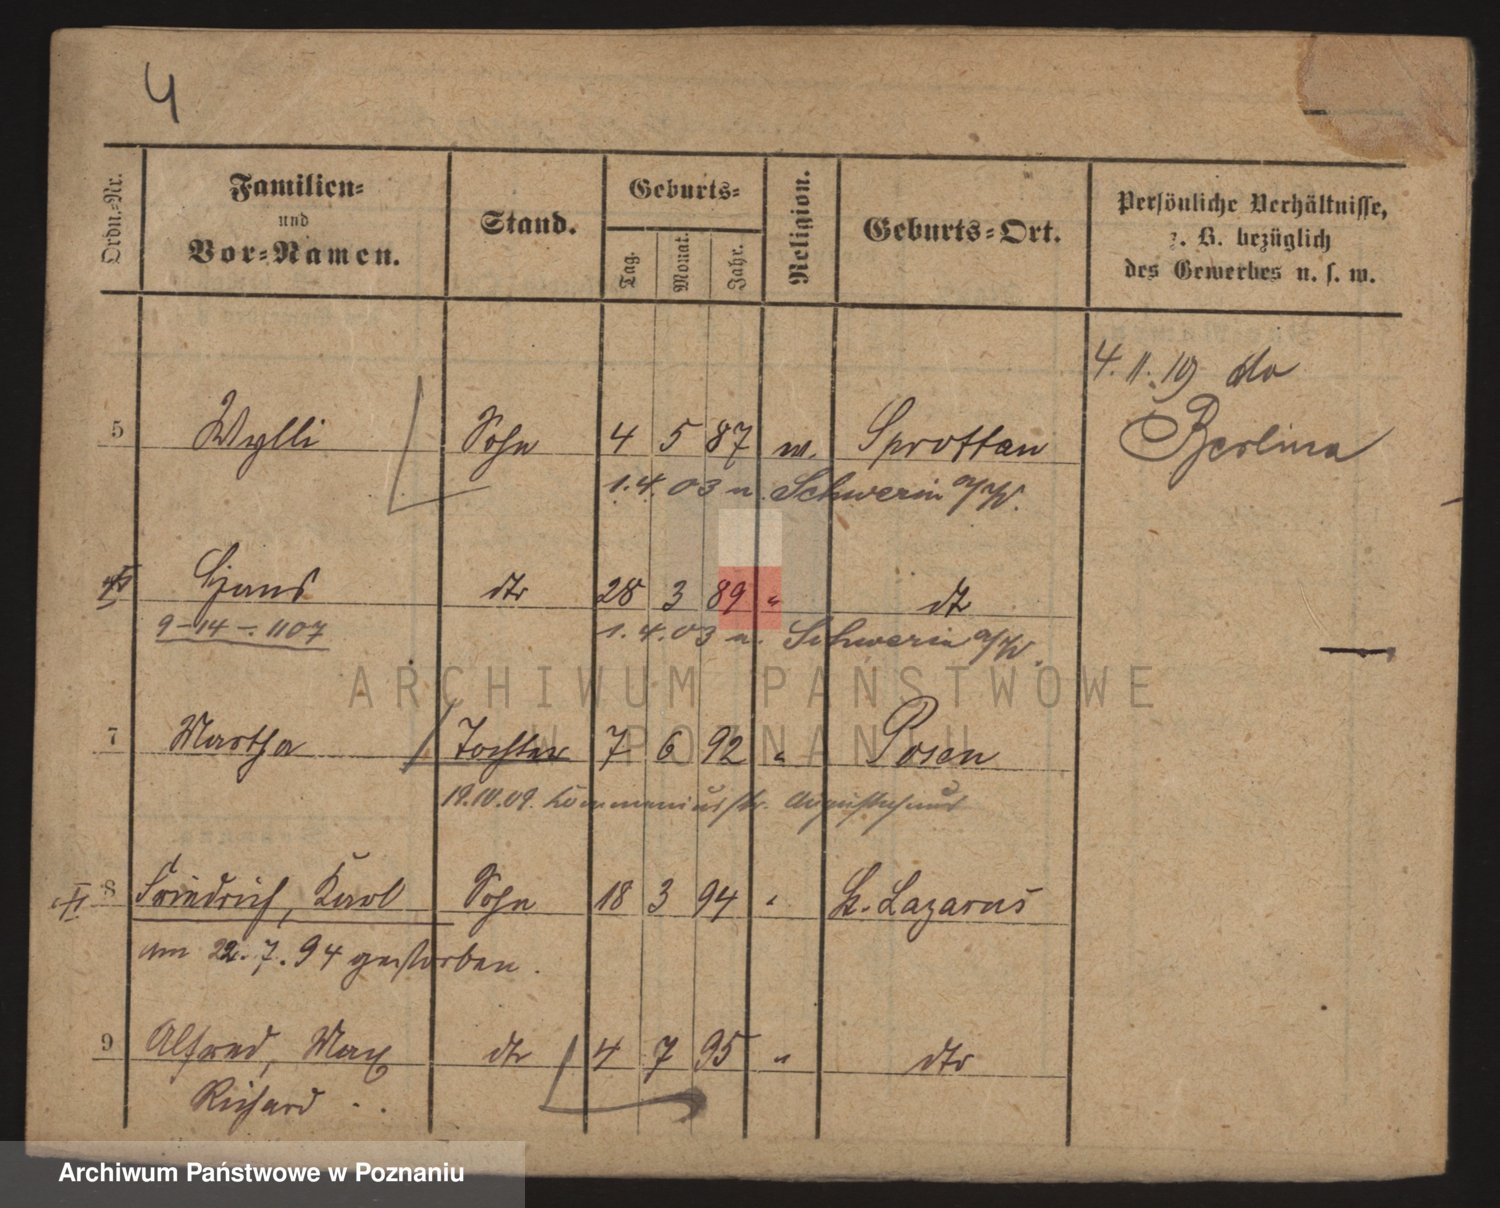 4
Ordn.-Nr.
Familien-
und
Vor-Namen.
Stand.
Geburts-
Tag.
Monat.
Jahr.
Religion.
Geburts-Ort.
Persönliche Verhältnisse,
z. B. bezüglich
des Gewerbes u. s. w.
4. 11. 19 do
Berlina
5 Wylli Sohn 4 5 87 w. Sprottau
1.4.03 n. Schwerin a/W.
Hans dto 28 3 89 " dto
9-14-1107 1.4.03 n. Schwerin a/W.
7 Martha Tochter 7 6 92 " Posen
19.10.09.
8 Friedrich, Karl Sohn 18 3 94 " St. Lazarus
am 22.7.94 gestorben.
9 Alfred, Max dto 4 7 95 " dto
Richard
ARCHIWUM PAŃSTWOWE
W POZNANIU
Archiwum Państwowe w Poznaniu